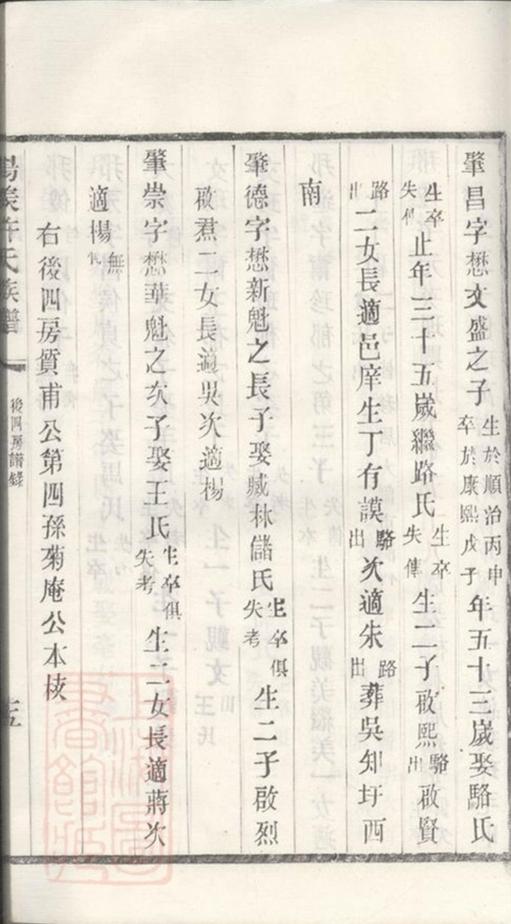 肇昌字懋文盛之子生於順治丙申卒於康熙戊子年五十三嵗娶駱氏
生卒失傳止年三十五嵗繼路氏生卒失傳生二子啟熙駱出啟賢
路出二女長適邑庠生丁有謨駱出次適朱路出葬吳知圩西
南
肇德字懋新魁之長子娶臧林儲氏生卒俱失考生二子啟烈
啟焄二女長適吳次適楊
肇崇字懋華魁之次子娶王氏生卒俱失考生二女長適蔣次
適楊無傳
右後四房質甫公第四孫菊庵公本枝
許氏族譜
後四房譜錄